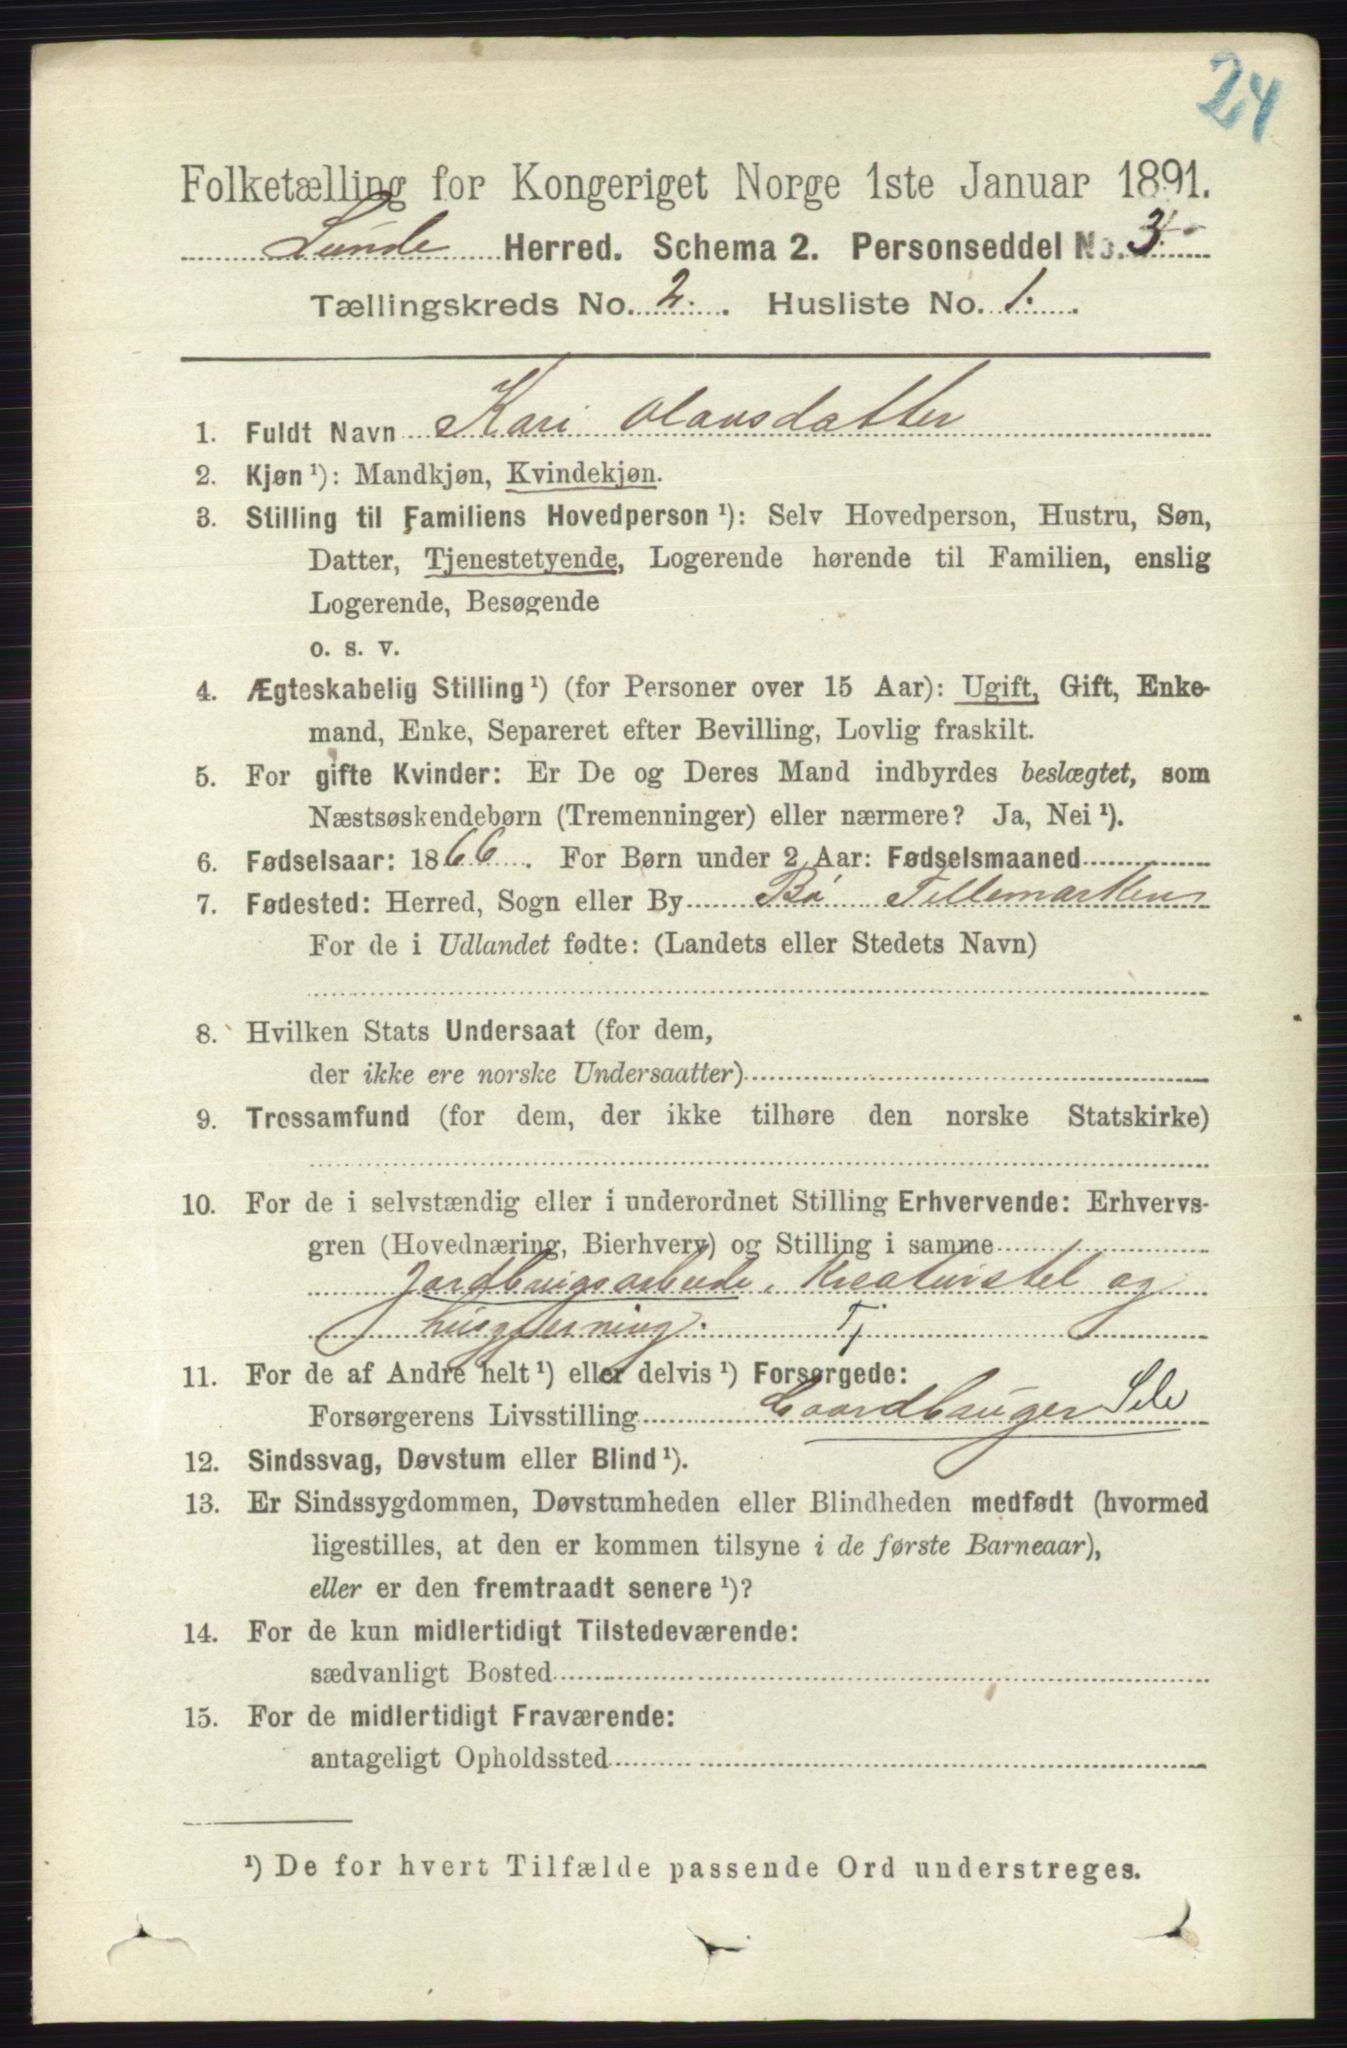 24
Folketælling for Kongeriget Norge 1ste Januar 1891.
Lunde Herred. Schema 2. Personseddel No. 3.
Tællingskreds No. 2. Husliste No. 1.
1. Fuldt Navn Kari Olavsdatter
2. Kjøn ¹): Mandkjøn, Kvindekjøn.
3. Stilling til Familiens Hovedperson ¹): Selv Hovedperson, Hustru, Søn,
Datter, Tjenestetyende, Logerende hørende til Familien, enslig
Logerende, Besøgende
o. s. v.
4. Ægteskabelig Stilling ¹) (for Personer over 15 Aar): Ugift, Gift, Enke-
mand, Enke, Separeret efter Bevilling, Lovlig fraskilt.
5. For gifte Kvinder: Er De og Deres Mand indbyrdes beslægtet, som
Næstsøskendebørn (Tremenninger) eller nærmere? Ja, Nei ¹).
6. Fødselsaar: 1866. For Børn under 2 Aar: Fødselsmaaned
7. Fødested: Herred, Sogn eller By Bø Tellemarken
For de i Udlandet fødte: (Landets eller Stedets Navn)
8. Hvilken Stats Undersaat (for dem,
der ikke ere norske Undersaatter)
9. Trossamfund (for dem, der ikke tilhøre den norske Statskirke)
10. For de i selvstændig eller i underordnet Stilling Erhvervende: Erhvervs-
gren (Hovednæring, Bierhverv) og Stilling i samme
Jordbrugsarbeide, Kreaturstel og
husgjerning. Tj
11. For de af Andre helt ¹) eller delvis ¹) Forsørgede:
Forsørgerens Livsstilling Gaardbruger Selv
12. Sindssvag, Døvstum eller Blind ¹).
13. Er Sindssygdommen, Døvstumheden eller Blindheden medfødt (hvormed
ligestilles, at den er kommen tilsyne i de første Barneaar),
eller er den fremtraadt senere ¹)?
14. For de kun midlertidigt Tilstedeværende:
sædvanligt Bosted
15. For de midlertidigt Fraværende:
antageligt Opholdssted
¹) De for hvert Tilfælde passende Ord understreges.